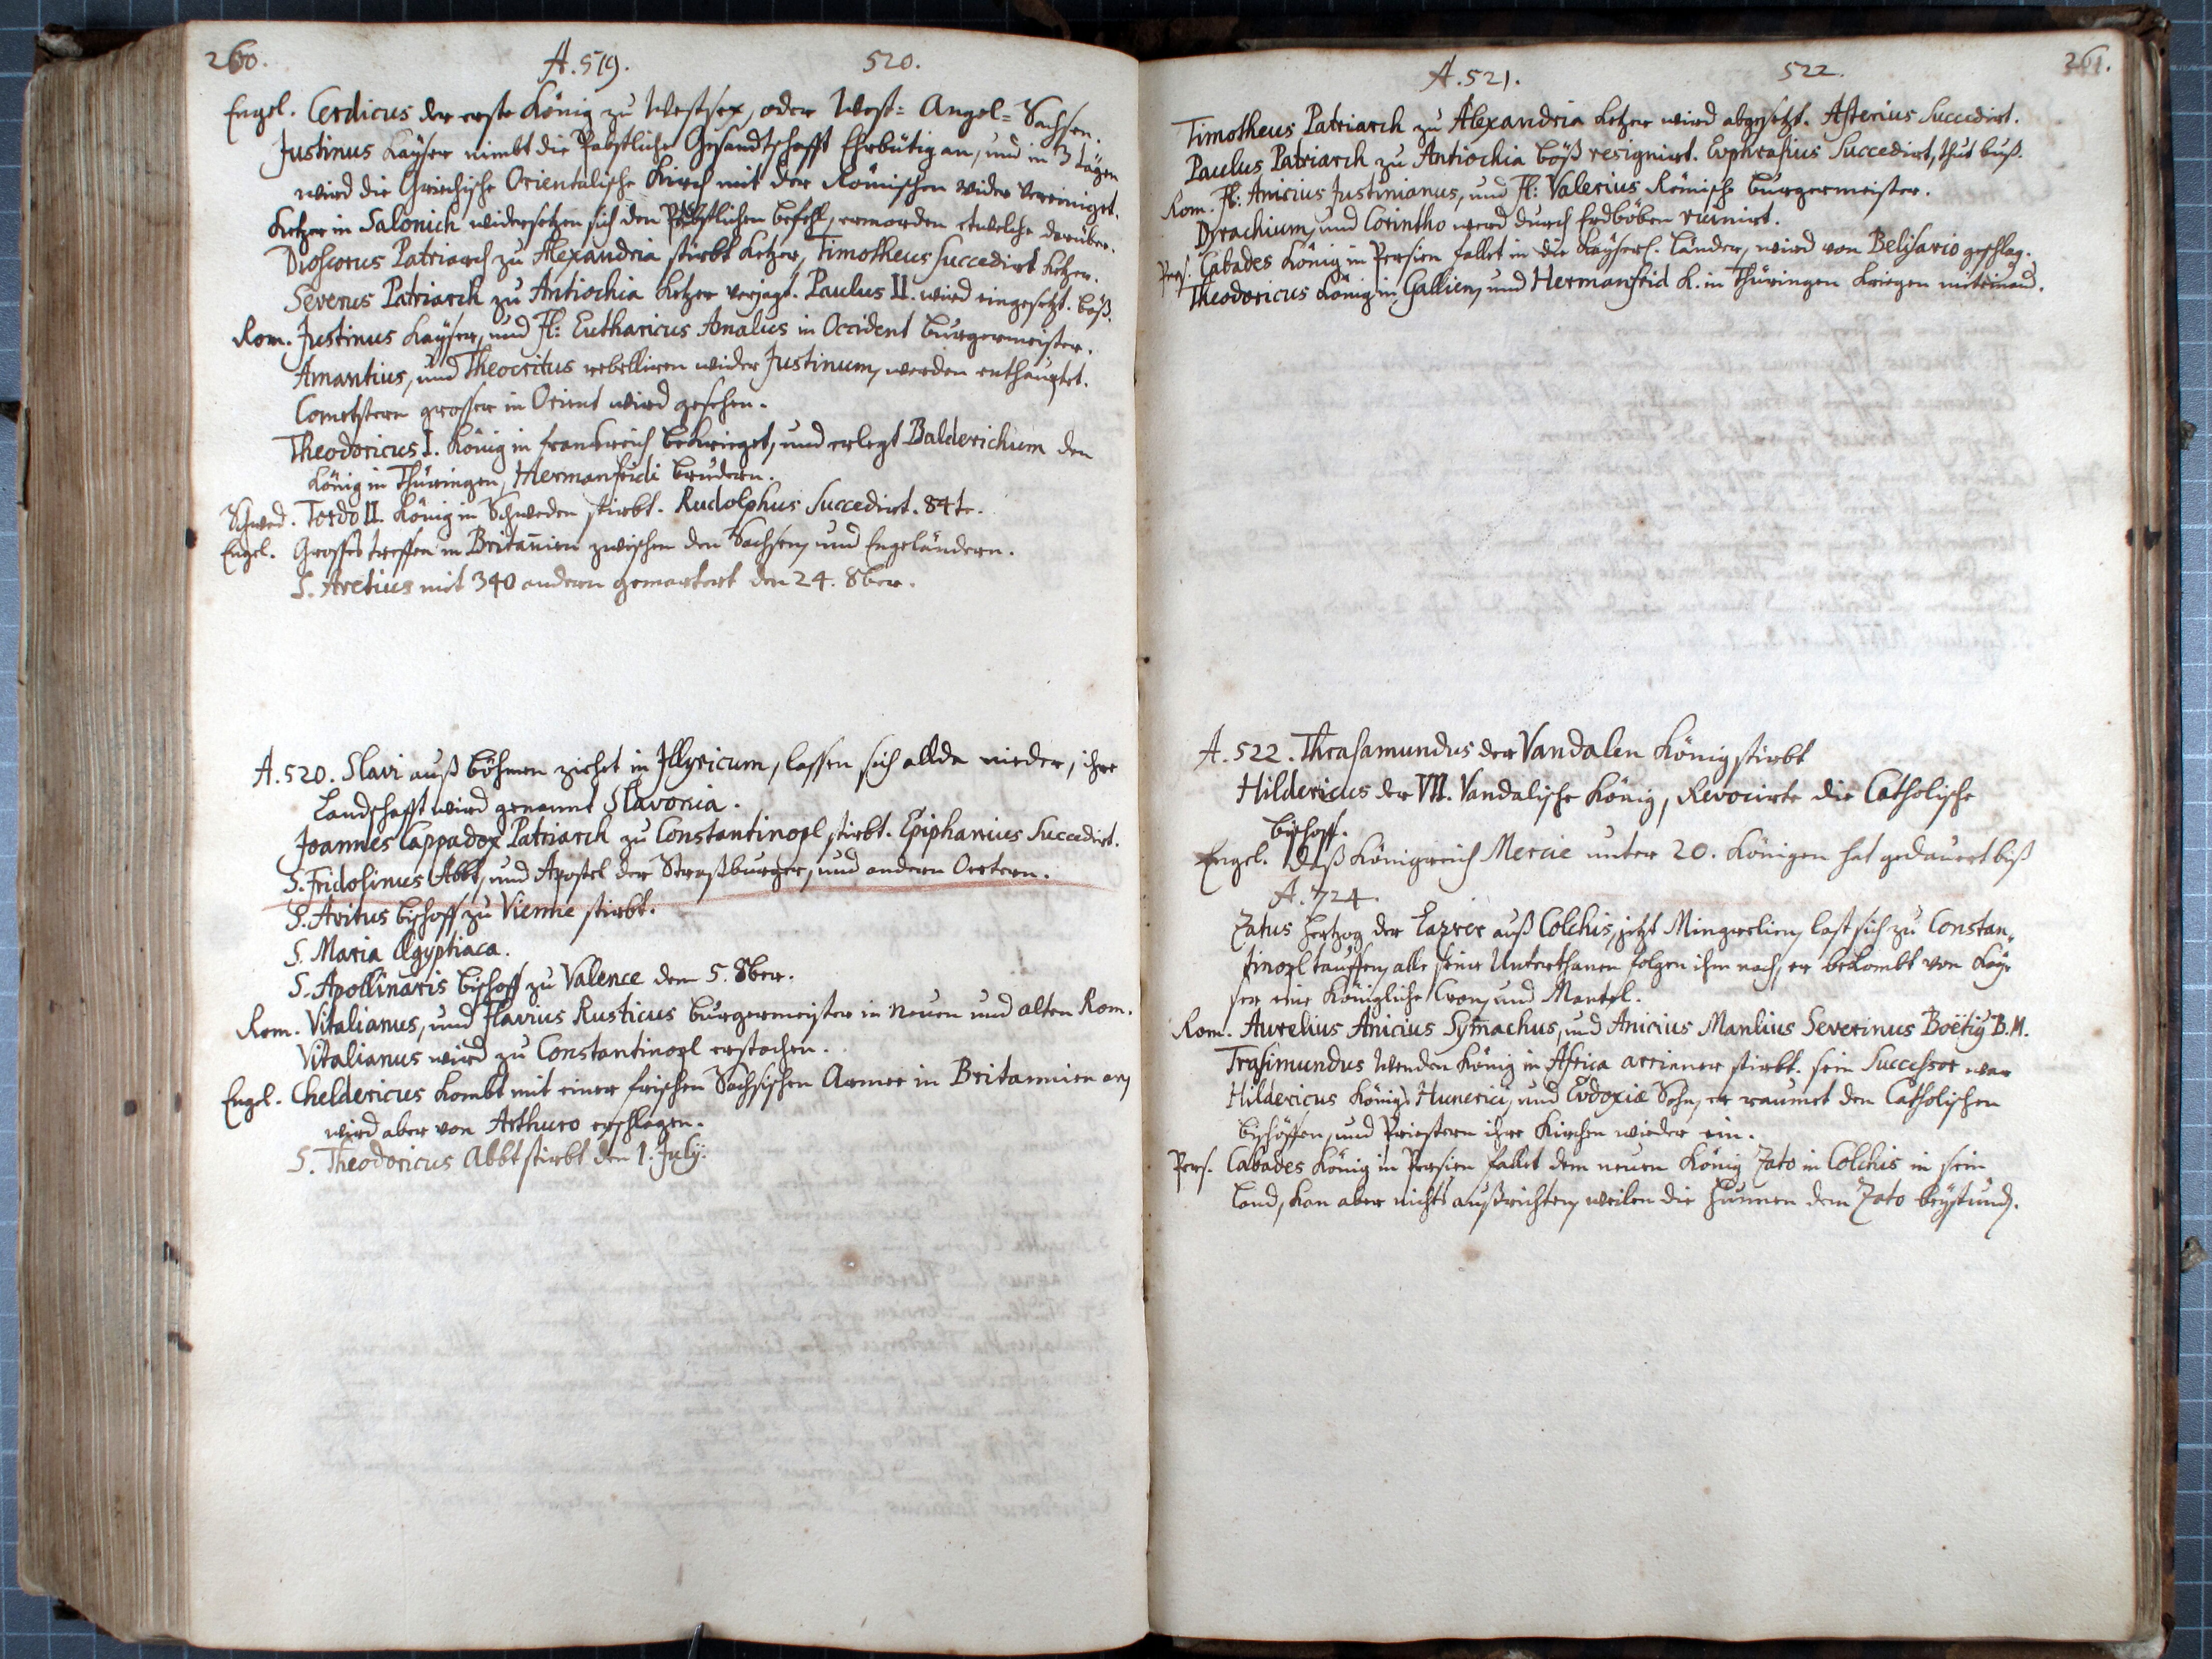 260.
A. 519. 520.
Engel. Cerdicus der erste König zu Westsex, oder West= Angel= Sachsen.
Justinus Kaÿser nimbt die Päbstliche Gesandtschafft Ehrbütig an, und in 3 tägen
wird die Griechische Orientalische Kirch mit der Römischen wider Vereiniget.
Ketzer in Salonich widersetzen sich den Päbstlichen befehl, ermorden etwelche darüber.
Dioscorus Patriarch zu Alexandria stirbt Ketzer, Timotheus Succedirt Ketzer.
Severus Patriarch zu Antiochia Ketzer verjagt. Paulus II. wird eingesetzt. böß.
Rom. Justinus Kaÿser, und Fl: Eutharicus Amalus in Occident burgermeister.
Amantius, und Theocritus rebelliren wider Justinum, werden enthauptet.
Cometstern grosser in Orient wird gesehen.
Theodoricus I. König in franckreich bekrieget, und erlegt Balderichum den
König in Thüringen, Hermanfridi brudern.
Schwed. Tordo II. König in Schweden stirbt. Rudolphus Succedirt. 84te.
Engel. Grosses treffen in Britañien zwischen den Sachsen, und Engeländern.
S. Aretius mit 340 andern gemartert den 24. 8ber.
A. 520. Slavi auß böhmen ziehet in Illyricum, lassen sich allda nieder, ihre
Landschafft wird genannt Slavonia.
Joannes Cappadox Patriarch zu Constantinopl stirbt. Epiphanius Succedirt.
S. Fridolinus Abbt, und Apostel der Straßburger, und andern Oertern.
S. Avitus bischoff zu Vienne stirbt.
S. Maria Ægyptiaca.
S. Apollinaris bischoff zu Valence dem 5. 8ber.
Rom. Vitalianus, und Flavius Rusticus burgermeister in neuen und alten Rom.
Vitalianus wird zu Constantinopl erstochen.
Engel. Cheldericus kombt mit einer frischen Sachsischen Armee in Britannien an,
wird aber von Arthuro erschlagen.
S. Theodoricus Abbt stirbt den 1. Julÿ.
A. 521. 522. 261.
Timotheus Patriarch zu Alexandria Ketzer wird abgesetzt. Asterius Succedirt.
Paulus Patriarch zu Antiochia böß resignirt. Euphrasius Succedirt, thut buß.
Rom. Fl: Anicius Justinianus, und Fl: Valerius Römische burgermeister.
Dyrachium, und Corintho werd durch Erdböben ruinirt.
Pers. Cabades König in Persien fallet in die Kaÿserl. Länder, wird von Belisario geschlag.
Theodoricus König in Gallien, und Hermanfrid K. in Thüringen kriegen miteinand.
A. 522. Thrasamundus der Vandalen König stirbt
Hildericus der VII. Vandalische König, Revocirte die Catholische
bischoff.
Engel. daß Königreich Merciæ unter 20. Königen hat gedauert biß
A. 724.
Zatus Hertzog der Lazier auß Colchis, jetzt Mingrelien, last sich zu Constan„
tinopl tauffen, alle seine Unterthanen folgen ihm nach, er bekombt von Kaÿ„
ser eine Königliche Cron, und Mantel.
Rom. Aurelius Anicius Sÿmachus, und Anicius Manlius Severinus Boëtiq B.M.
Trasimundus Wenden König in Africa arrianer stirbt. sein Successor war
Hildericus Königs Hunerici, und Eudoxiæ Sohn, er raumet den Catholischen
bischöffen, und Priestern ihre Kirchen wieder ein.
Pers. Cabades König in Persien fallet dem neuen König Zato in Colchis in sein
Land, kan aber nichts außrichten, weilen die Hunnen dem Zato beÿstund.